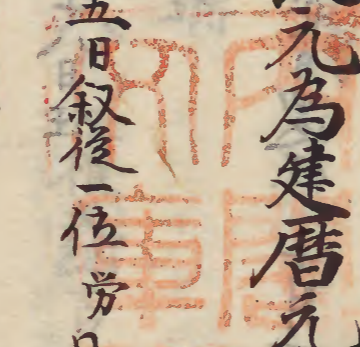 元為建暦元
五日叙従一位労